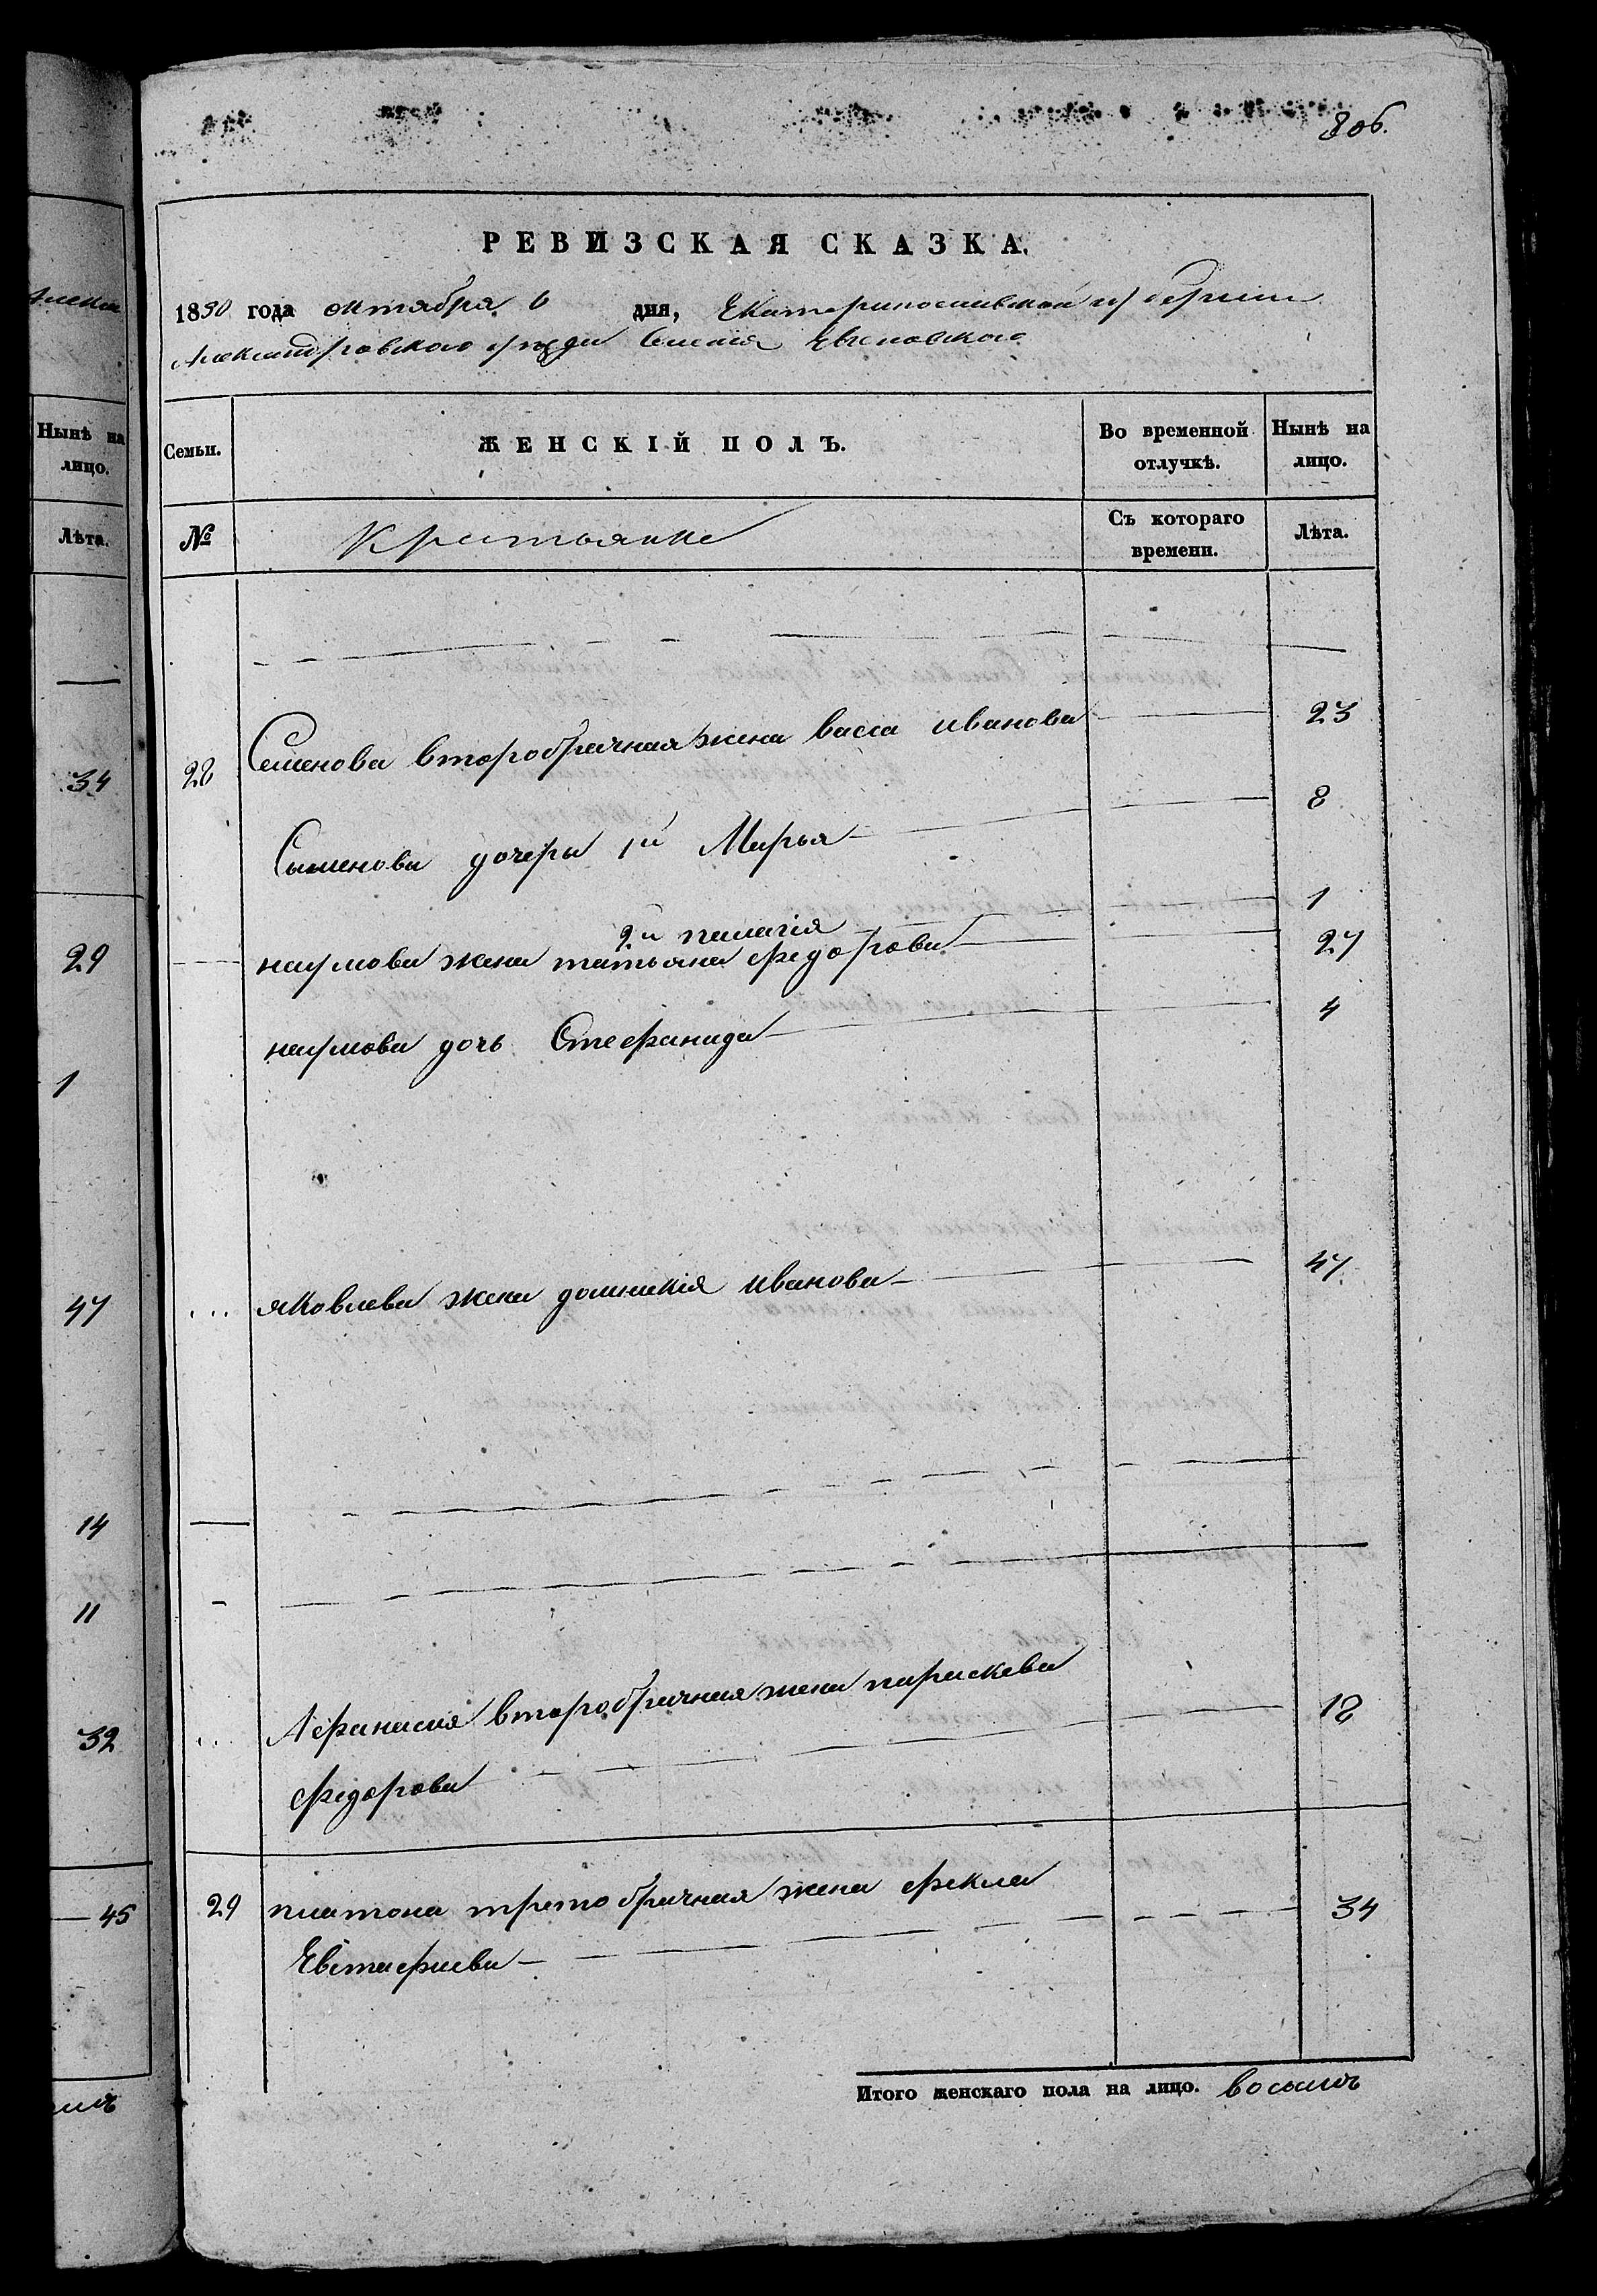 806.
РЕВИЗСКАЯ СКАЗКА.
1850 года октября 6 дня, Екатеринославской губернии
Александровского уезда Селения Евгеновского
Семьи. ЖЕНСКІЙ ПОЛЪ. Во временной отлучкѣ. Нынѣ на лицо.
№ Крестьянке Съ котораго времени. Лѣта.
28 Семенова второбрачная жена васса иванова 23
Семенова дочеры 1я Марья 8
2я пелагія 1
наумова жена татьяна федорова 27
наумова дочь Стефанида 4
яковлева жена домникія иванова 47
Афанасия второбрачная жена параскева 18
федорова
29 платона третобрачная жена фекла 34
Евстафиева
Итого женскаго пола на лицо. восымъ
Нынѣ на
лицо.
Лѣта.
34
29
1
47
14
11
32
45